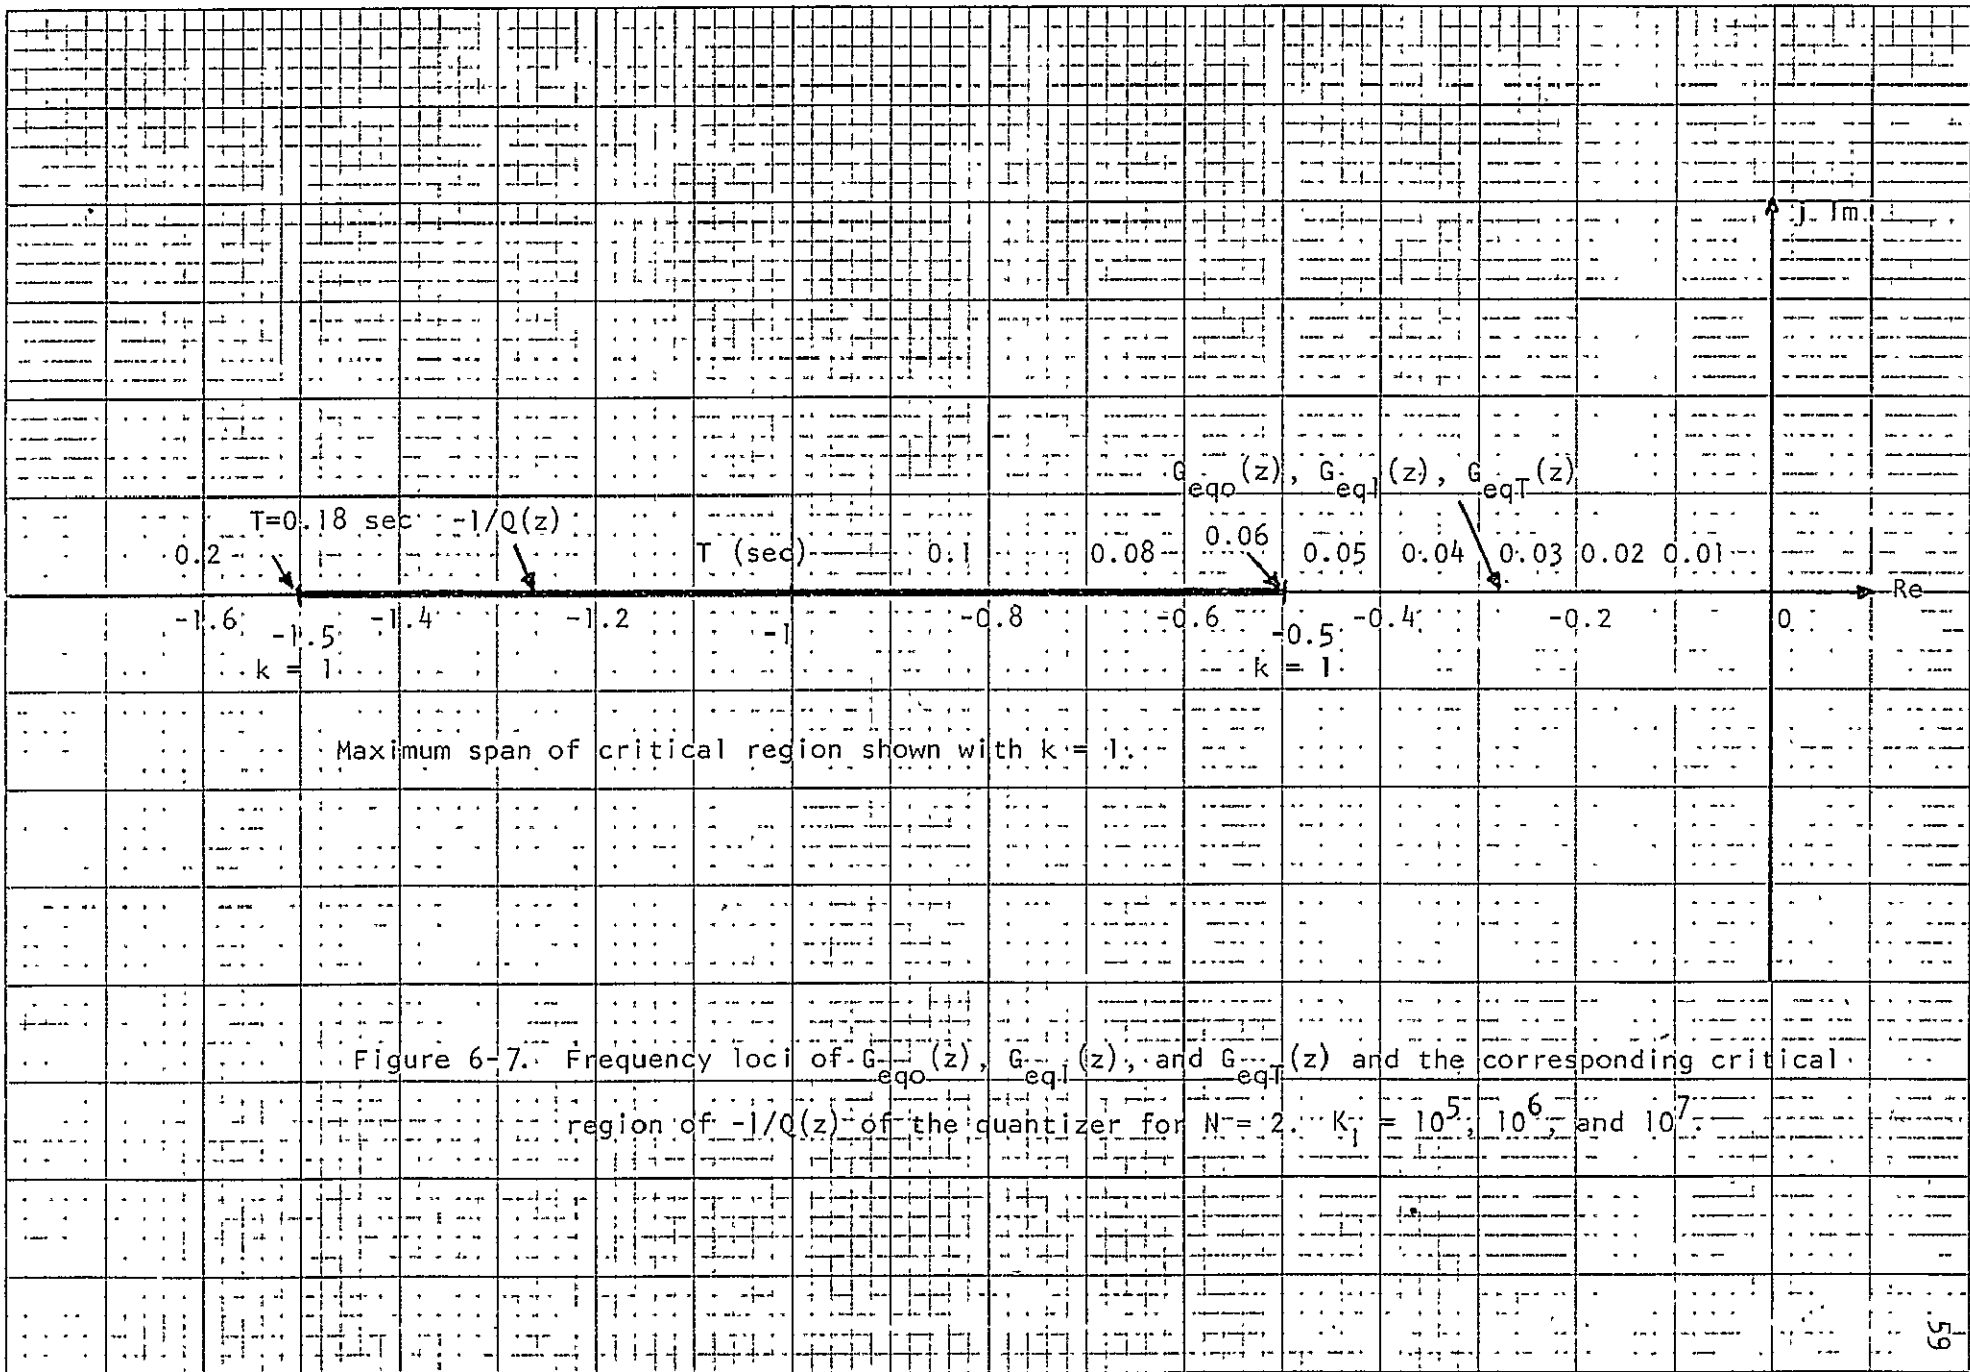 j Im
G_eqo(z), G_eqI(z), G_eqT(z)
T=0.18 sec -1/Q(z)
0.2 T (sec) 0.1 0.08 0.06 0.05 0.04 0.03 0.02 0.01
Re
-1.6 -1.5 -1.4 -1.2 -1 -0.8 -0.6 -0.5 -0.4 -0.2 0
k = 1 k = 1
Maximum span of critical region shown with k = 1.
Figure 6-7. Frequency loci of G_eqo(z), G_eqI(z), and G_eqT(z) and the corresponding critical
region of -1/Q(z) of the quantizer for N = 2. K_I = 10^5, 10^6, and 10^7.
59